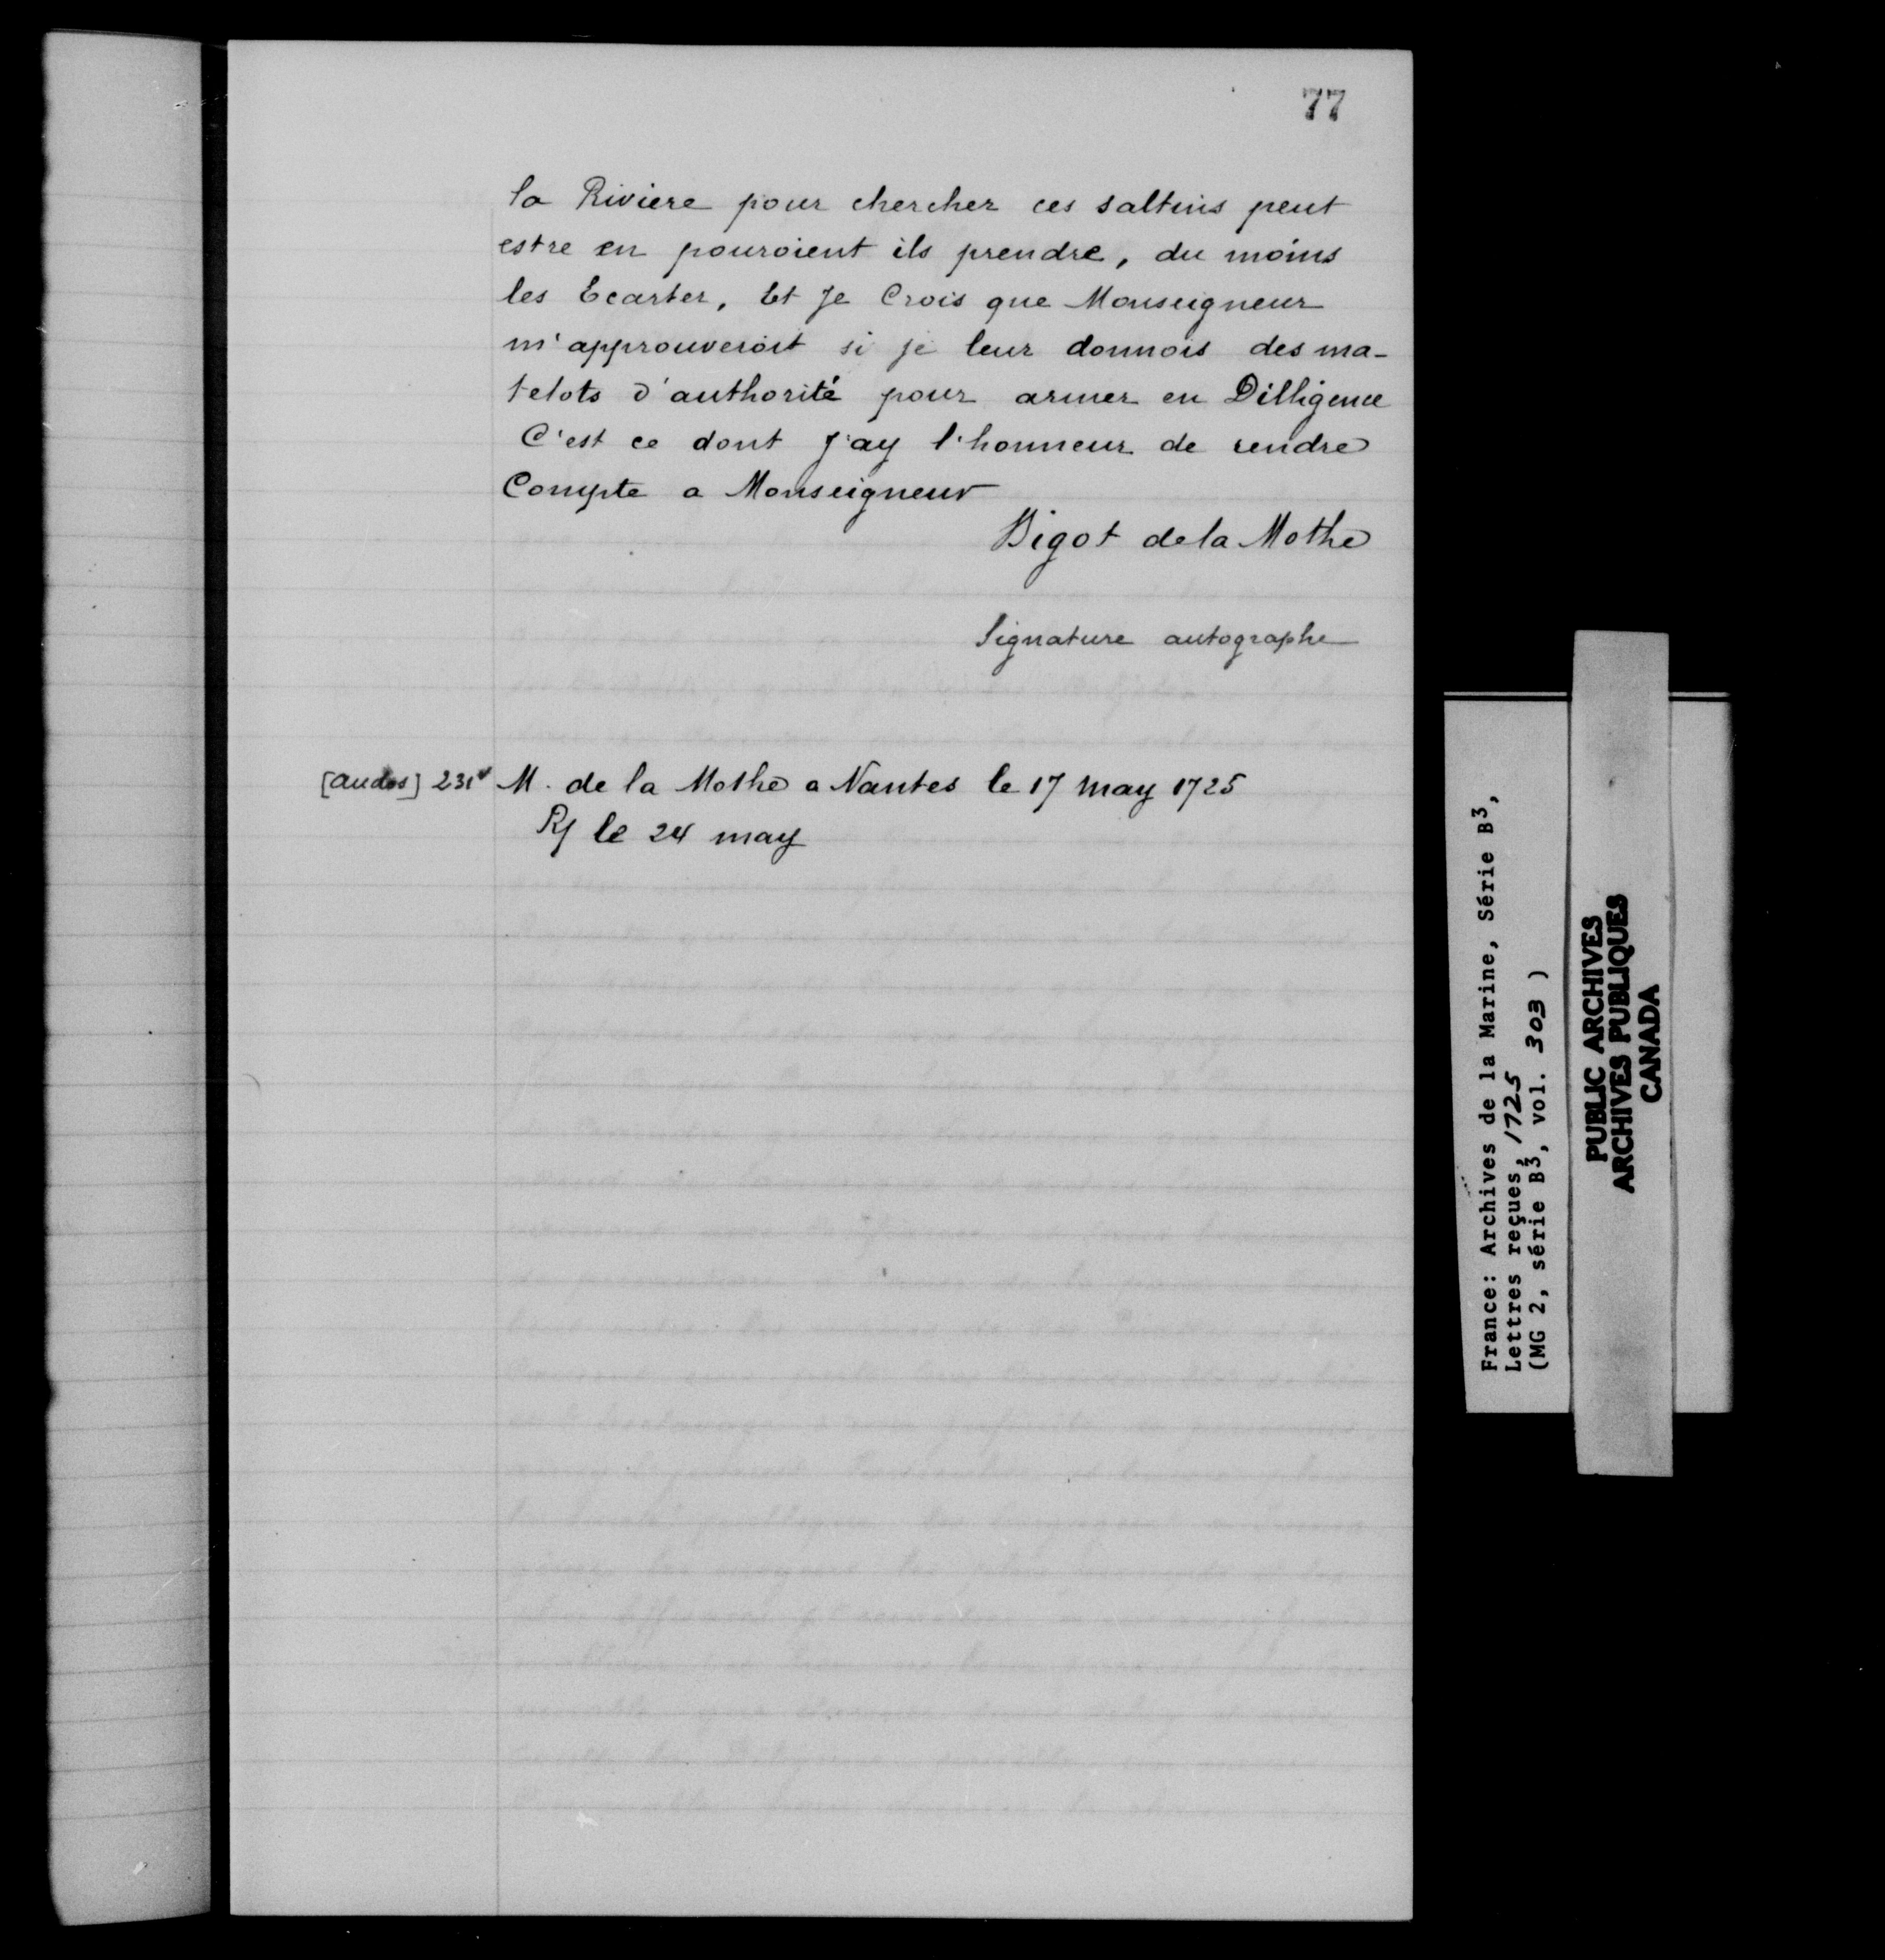 77
la Riviere pour chercher ces saltins peut
estre en pouroient ils prendre, du moins
les Ecarter, Et Je Crois que Monseigneur
m'approuveroit si je leur donnois des ma-
telots d'authorité pour armer en Dilligence
C'est ce dont J'ay l'honneur de rendre
Compte a Monseigneur
Bigot de la Mothe
Signature autographe
[au dos] 231v M. de la Mothe a Nantes le 17 may 1725
Rf le 24 may
France: Archives de la Marine, Série B3,
Lettres reçues, 1725
(MG 2, série B3, vol. 303 )
PUBLIC ARCHIVES
ARCHIVES PUBLIQUES
CANADA